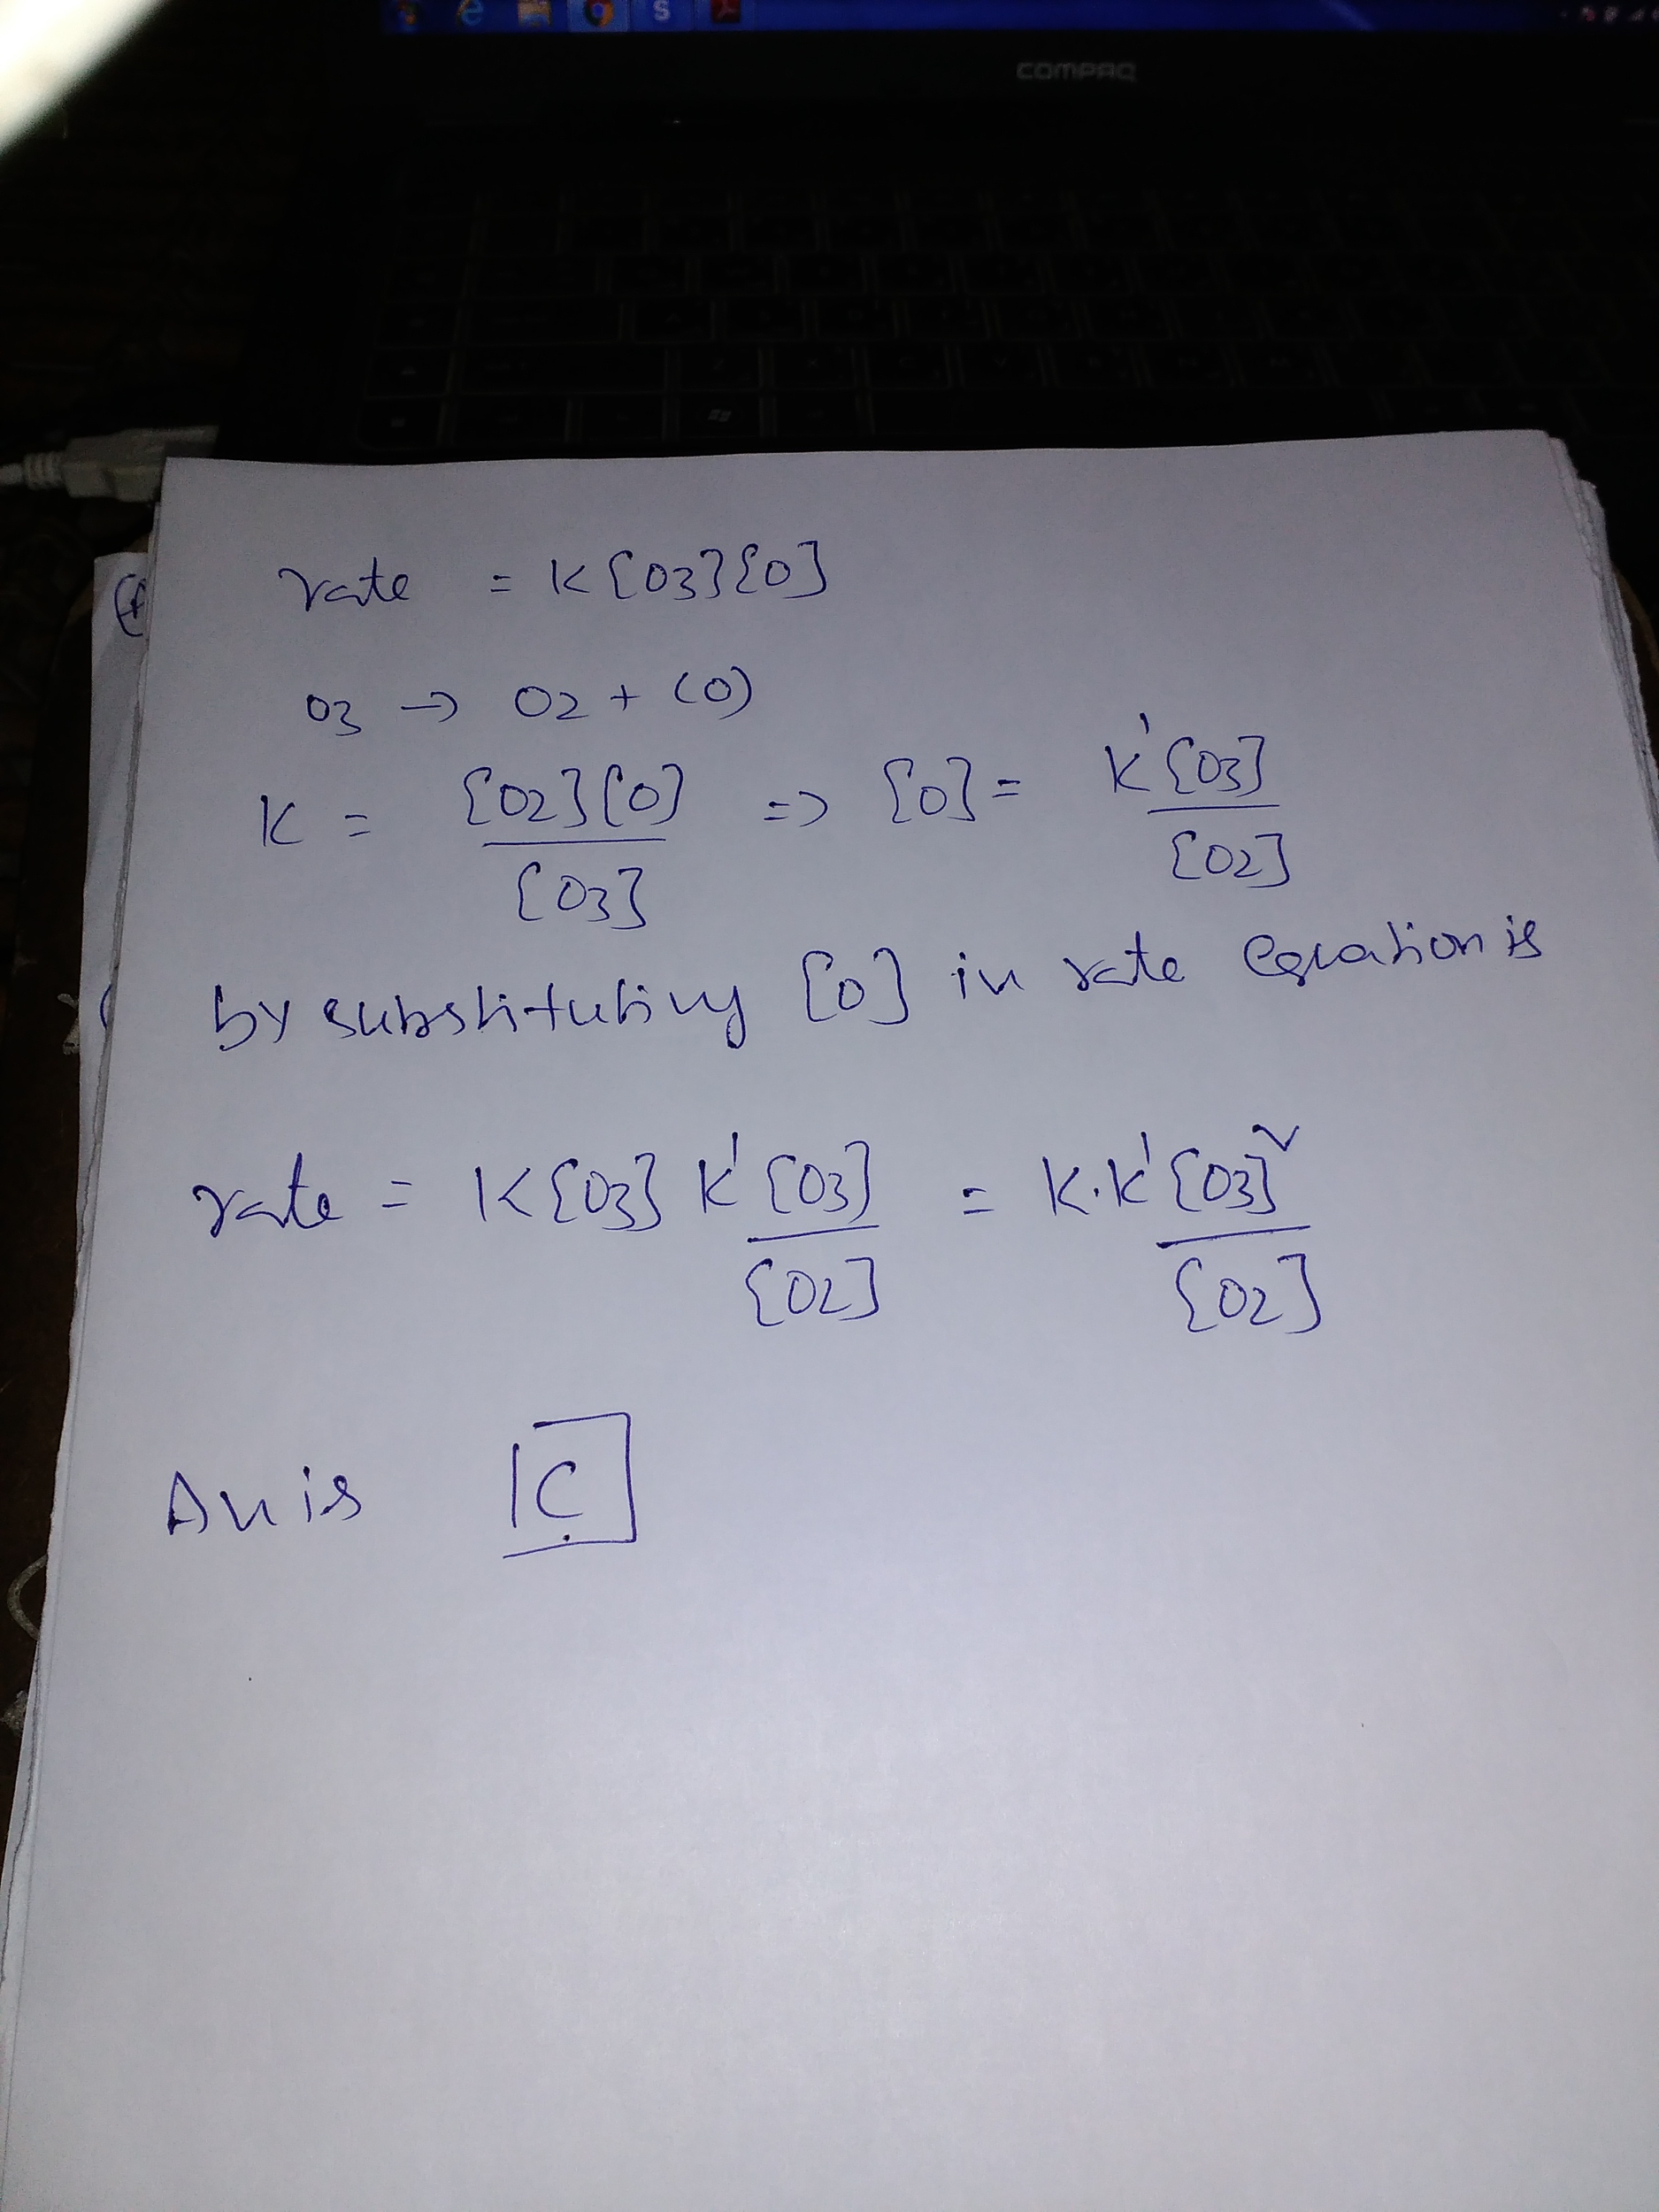 COMPAQ
rate = K[O3][O]
O3 → O2 + (O)
K = [O2][O] / [O3] => [O] = K'[O3] / [O2]
by substituting [O] in rate equation is
rate = K[O3] K'[O3] / [O2] = K.K'[O3]² / [O2]
An is C